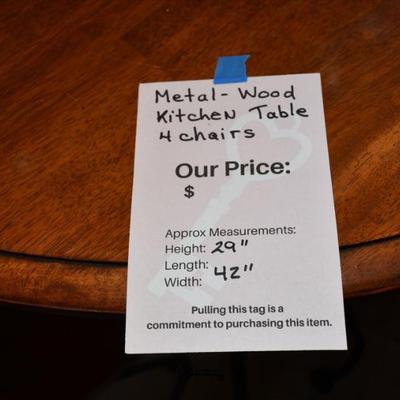 Metal-Wood
Kitchen Table
4 chairs
Our Price:
$
Approx Measurements:
Height: 29"
Length: 42"
Width:
Pulling this tag is a
commitment to purchasing this item.